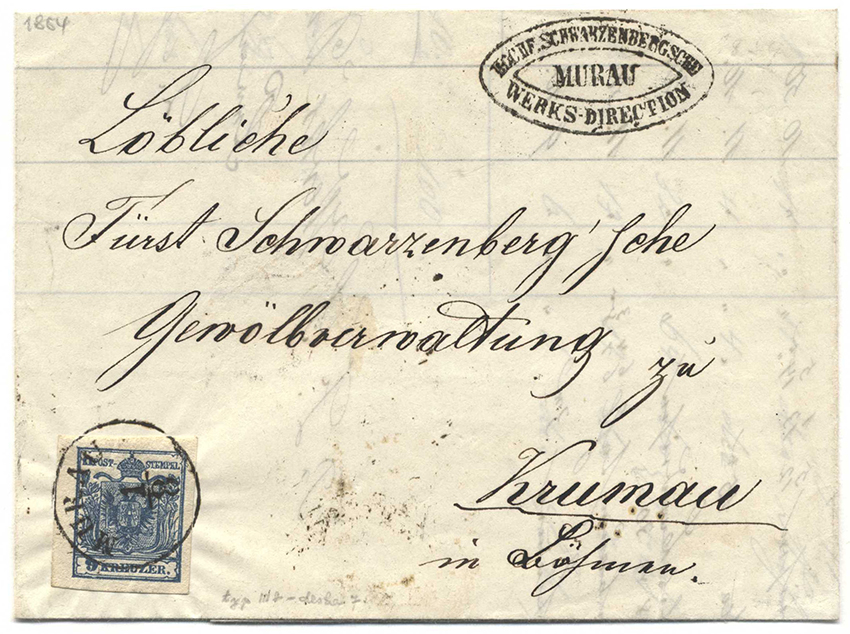 1854
HOCHF. SCHWARZENBERGSCHE
MURAU
WERKS-DIRECTION
Löbliche
Fürst Schwarzenberg'sche
Gewölbverwaltung
zu
Krumau
in Böhmen.
MURAU
1/8
KK POST-STEMPEL
9 KREUZER.